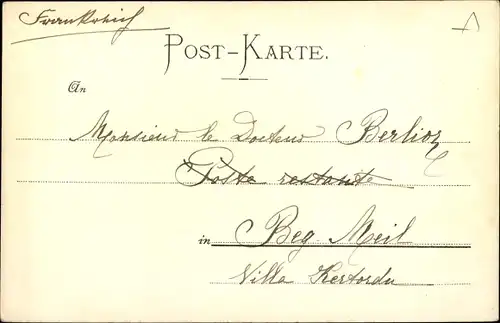 Frankreich
POST-KARTE.
An
Monsieur le Docteur Berlioz
Poste restante
in Beg Meil
Villa